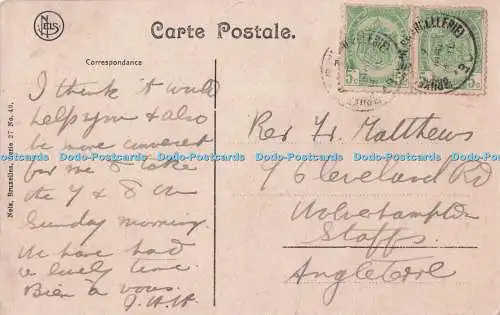 NELS
Carte Postale.
Correspondance
I think it would
help you & also
be more convenient
for me to take
the 7 & 8 on
Sunday morning.
We have had
a lovely time.
Bien à vous.
Rev Fr. Matthews
7 Cleveland Rd
Wolverhampton
Staffs.
Angleterre
Nels, Bruxelles, Serie 27 No. 40.
5c
5c
Dodo-Postcards Dodo-Postcards Dodo-Postcards Dodo-Postcards Dodo-Postcards Dodo-Postcards